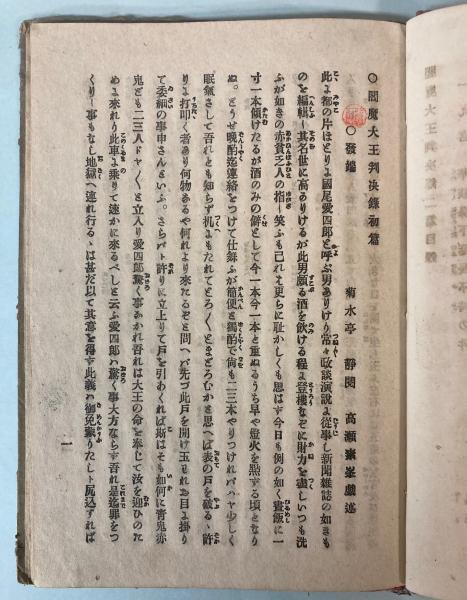 ○閻魔大王判決錄初篇
菊水亭 靜閑 高瀬 峯戯述
○發端
此よ都の片ほとりよ國尾愛四郎と呼ぶ男ありけり常々政談演說よ從事し新聞雜誌の如きも
のを編輯し其名世に高ありけるが此男頗る酒を飮ける程よ登樓なぞに財力を盡しいつも洗
ふが如きの赤貧乏人の指し笑ふも己れハ更らに耻かしくも思はす今日も例の如く晝飯に一
寸一本傾けたるが酒のみの僻として今一本今一本と重ぬるうち早や燈火を點する頃となり
ぬ。どうせ晩酌迄連絡をつけて仕錄ふが簡便と獨酌で尙も二三本やりつけれバハヤ少しく
眠氣さして吾れとも知らず机よもたれてとろ〳〵とまどろむかと思へば表の戸を破るゝ許
りよ打叩く者あり何物あるや何れより來たるぞと問へバ先づ此戸を開け玉ハれお目よ掛り
て委細の事申さんといふ。さらバト許りに立上りて戸を引あくれば斯はそも如何に靑鬼赤
鬼ども二三人ドヤ〳〵と立入り愛四郎驚く事あかれ吾れは大王の命を奉じて汝を迎ひのた
めよ來れり此車よ乘りて速かに來るべしと云ふ愛四郎ハ驚く事大方ならす吾れ是迄罪をつ
くりし事もなし地獄へ連れ行るゝは甚だ以て其意を得す此義ハ御免蒙りたしト尻込すれば
一